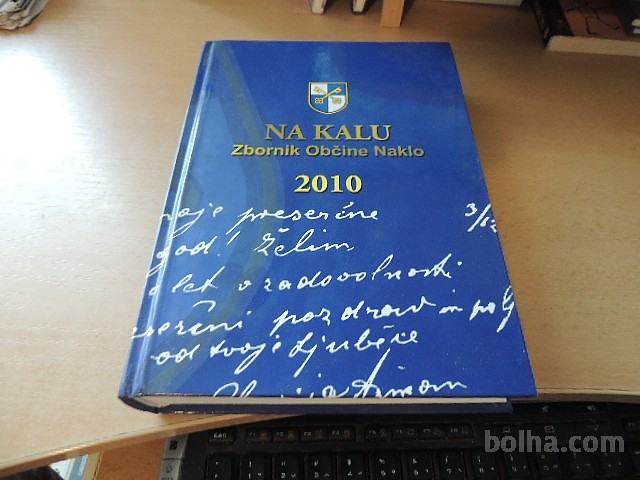 NA KALU
Zbornik Občine Naklo
2010
preserčne 3/12
god! Želim
let v zadovolnosti
pozdrav in
od tvoje ljubeče
bolha.com